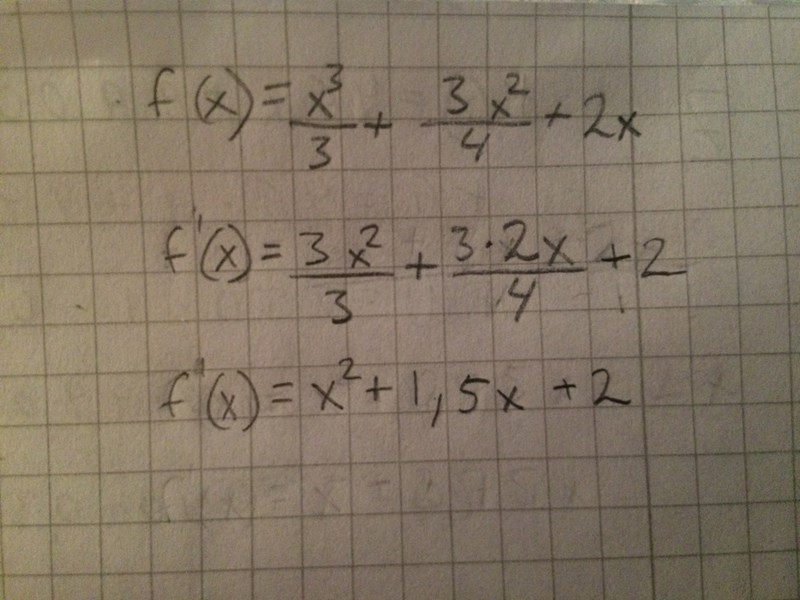 f(x) = x³/3 + 3x²/4 + 2x
f'(x) = 3x²/3 + 3·2x/4 + 2
f"(x) = x² + 1,5x + 2